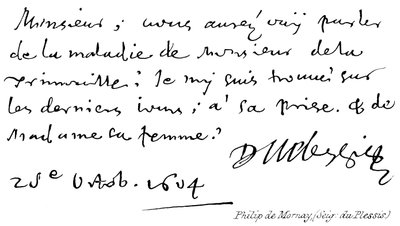 Monsieur; vous aurez ouy parler
de la maladie de Monsieur de la
Trimouille: Je my suis trouué sur
les derniers iours; a' sa prise. & de
Madame sa femme.
Duplessis
25e Octob. 1604
Philip de Mornay, (Seigr. du Plessis)